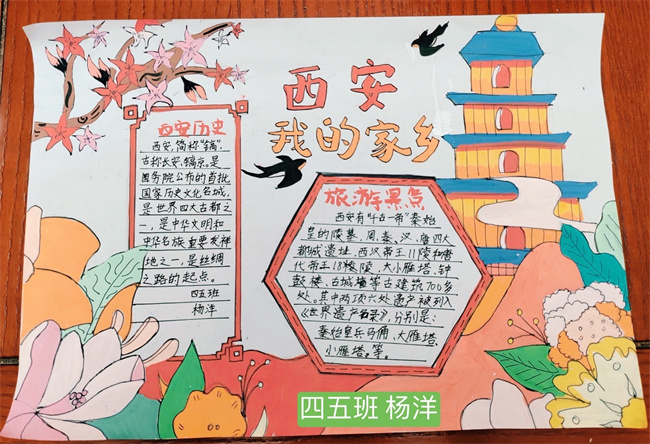 西安
我的家乡
西安历史
西安,简称"镐".
古称长安、镐京。是
国务院公布的首批
国家历史文化名城,
是世界四大古都之
一,是中华文明和
中华名族重要发祥
地之一,是丝绸
之路的起点。
四五班
杨洋
旅游景点
西安有"千古一帝"秦始
皇的陵墓,周、秦、汉、唐四大
都城遗址,西汉帝王11陵和唐
代帝王18陵,大小雁塔、钟
鼓楼、古城墙等古建筑700多
处。其中两项六处遗产被列入
《世界遗产名录》,分别是:
秦始皇兵马俑、大雁塔、
小雁塔。等。
四五班 杨洋